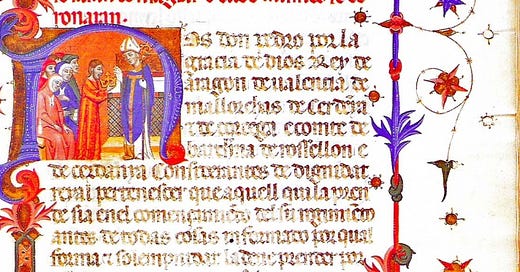 ronaran.
Nos don pedro por la
gracia de dios Rey de
Aragon de valencia de
mallorchas de Cerdeña
e de corcega e comte de
barcelona de rossellon e
de cerdanya Considerantes de dignidat
real pertenescer que aquell qui la pren
de sia en el començamiento del su regimiento
antes de todas cosas informado por qual
forma e solempnidat la deve prender por